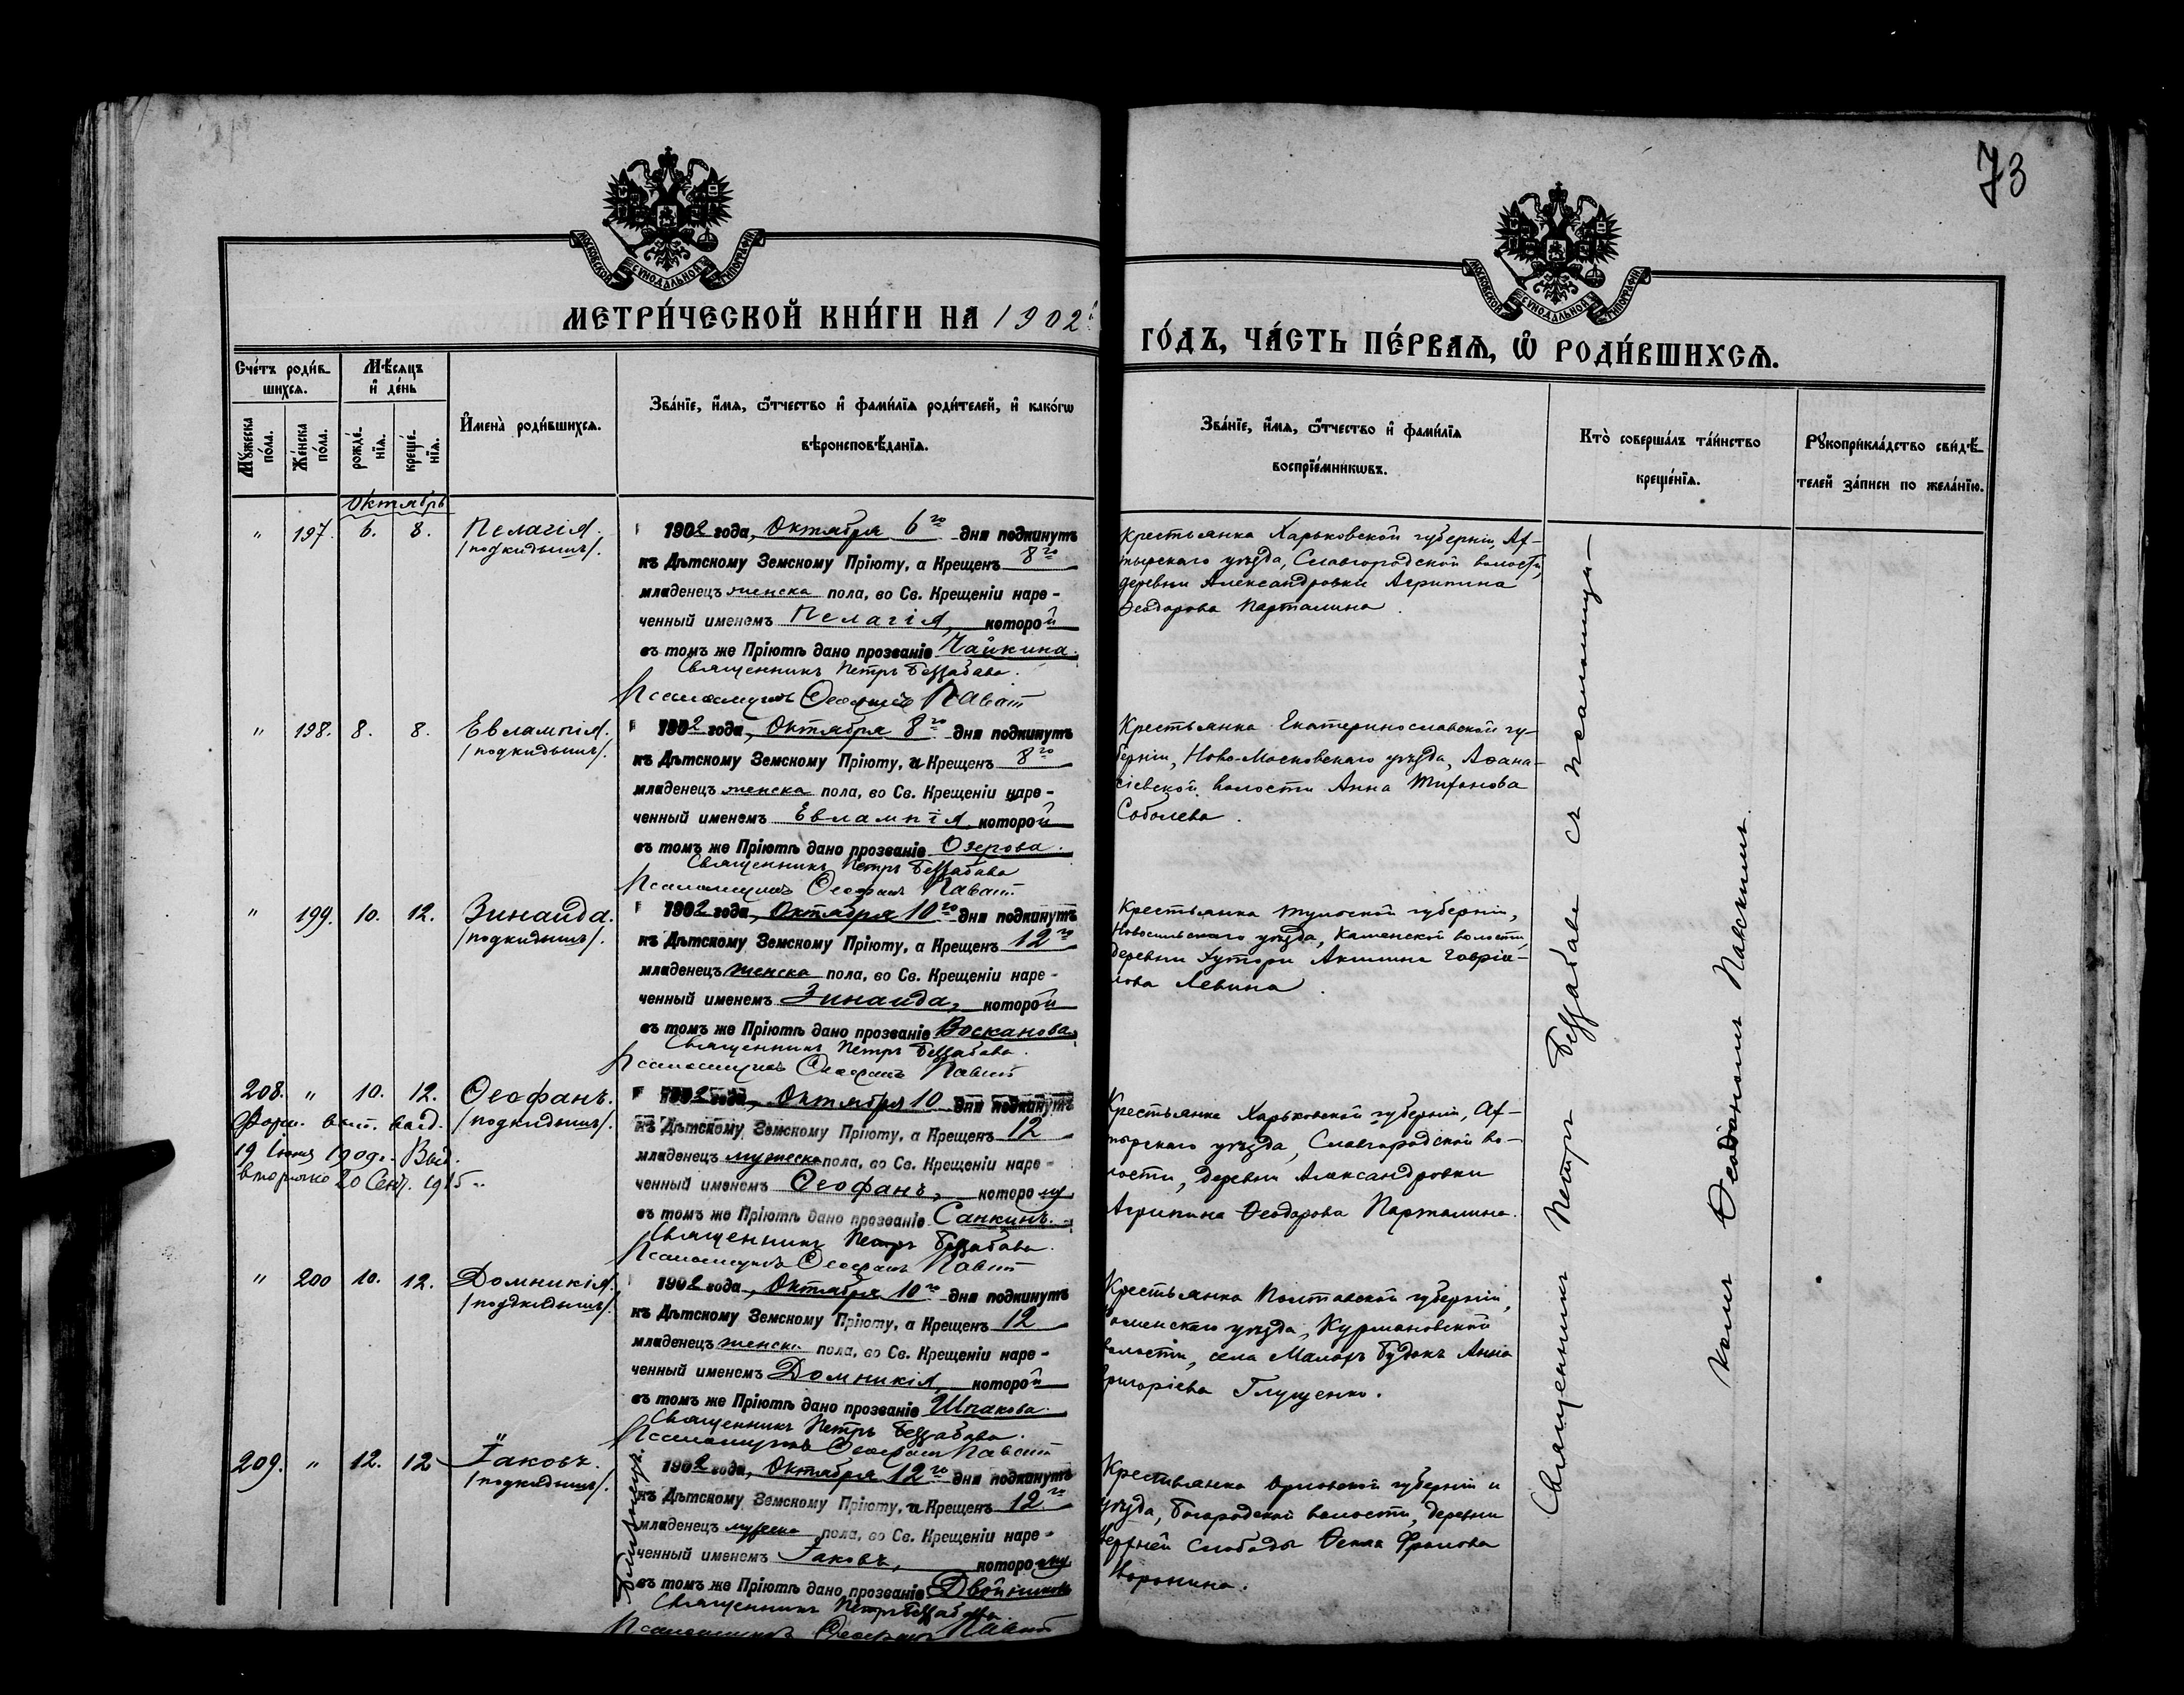 73
МОСКОВСКОЙ СУНОДАЛЬНОЙ ТИПОГРАФІИ
МОСКОВСКОЙ СУНОДАЛЬНОЙ ТИПОГРАФІИ
МЕТРИ́ЧЕСКОЙ КНИ́ГИ НА 1902
ГО́ДЪ, ЧА́СТЬ ПЕ́РВАѦ, Ѽ РОДИ́ВШИХСѦ.
Сче́тъ роди́в-
шихсѧ.
Мѣ́сѧцъ
и҆ де́нь
Мꙋ́жеска
по́ла.
Же́нска
по́ла.
рожде́-
нїѧ.
креще́-
нїѧ.
И҆мена̀ роди́вшихсѧ.
Зва́нїе, и҆́мѧ, ѻ҆́тчество и҆ фами́лїѧ роди́телей, и҆ како́гѡ
вѣроисповѣ́данїѧ.
Зва́нїе, и҆́мѧ, ѻ҆́тчество и҆ фами́лїѧ
воспрїе́мникѡвъ.
Кто̀ соверша́лъ та́инство
креще́нїѧ.
Рꙋкоприкла́дство свидѣ́-
телей за́писи по жела́нїю.
Октябрь
" 197. 6. 8. Пелагія.
/подкидышъ/.
1902 года, Октября 6го дня подкинутъ
къ Дѣтскому Земскому Пріюту, а Крещенъ 8го
младенецъ женска пола, во Св. Крещеніи наре-
ченный именемъ Пелагія, которой
въ томъ же Пріютѣ дано прозваніе Чайкина.
Священникъ Петръ
Псаломщикъ
Крестьянка Харьковской губерніи, Ах-
тырскаго уѣзда, Славгородской волости,
деревни Александровки Агрипина
Ѳеодорова Парталина.
" 198. 8. 8. Евлампія.
/подкидышъ/.
1902 года, Октября 8го дня подкинутъ
къ Дѣтскому Земскому Пріюту, а Крещенъ 8го
младенецъ женска пола, во Св. Крещеніи наре-
ченный именемъ Евлампія, которой
въ томъ же Пріютѣ дано прозваніе Озерова.
Священникъ Петръ
Псаломщикъ
Крестьянка Екатеринославской гу-
берніи, Ново-Московскаго уѣзда, Аѳана-
сіевской волости Анна Тихонова
Соболева.
" 199. 10. 12. Зинаида.
/подкидышъ/.
1902 года, Октября 10го дня подкинутъ
къ Дѣтскому Земскому Пріюту, а Крещенъ 12го
младенецъ женска пола, во Св. Крещеніи наре-
ченный именемъ Зинаида, которой
въ томъ же Пріютѣ дано прозваніе Восканова.
Священникъ Петръ
Псаломщикъ
Крестьянка Тульской губерніи,
Новосильскаго уѣзда, Каменской волости,
деревни Хутори Акилина Гавріи-
лова Левина.
208. " 10. 12. Ѳеофанъ.
/подкидышъ/.
19 Іюня 1909г. Выд.
вторично 20 Сент. 1915
1902 года, Октября 10 дня подкинутъ
къ Дѣтскому Земскому Пріюту, а Крещенъ 12
младенецъ мужеска пола, во Св. Крещеніи наре-
ченный именемъ Ѳеофанъ, которому
въ томъ же Пріютѣ дано прозваніе Санкинъ.
Священникъ Петръ
Псаломщикъ
Крестьянка Харьковской губерніи, Ах-
тырскаго уѣзда, Славгородской во-
лости, деревни Александровки
Агрипина Ѳеодорова Парталина.
" 200 10. 12. Домникія.
/подкидышъ/.
1902 года, Октября 10го дня подкинутъ
къ Дѣтскому Земскому Пріюту, а Крещенъ 12
младенецъ женска пола, во Св. Крещеніи наре-
ченный именемъ Домникія, которой
въ томъ же Пріютѣ дано прозваніе Шпакова.
Священникъ Петръ
Псаломщикъ
Крестьянка Полтавской губерніи,
уѣзда, Курмановской
волости, села Малыхъ Будокъ Анна
Григорієва Глущенко.
209. " 12. 12 Іаковъ.
/подкидышъ/.
1902 года, Октября 12го дня подкинутъ
къ Дѣтскому Земскому Пріюту, а Крещенъ 12го
младенецъ мужеска пола, во Св. Крещеніи наре-
ченный именемъ Іаковъ, которому
въ томъ же Пріютѣ дано прозваніе Двойниковъ
Священникъ Петръ
Псаломщикъ
Крестьянка Орловской губерніи и
уѣзда, Богородской волости, деревни
Верхней Слободы Ѳекла Фролова
Воронина.
Священникъ Петръ съ псаломщи-
комъ Павскимъ.